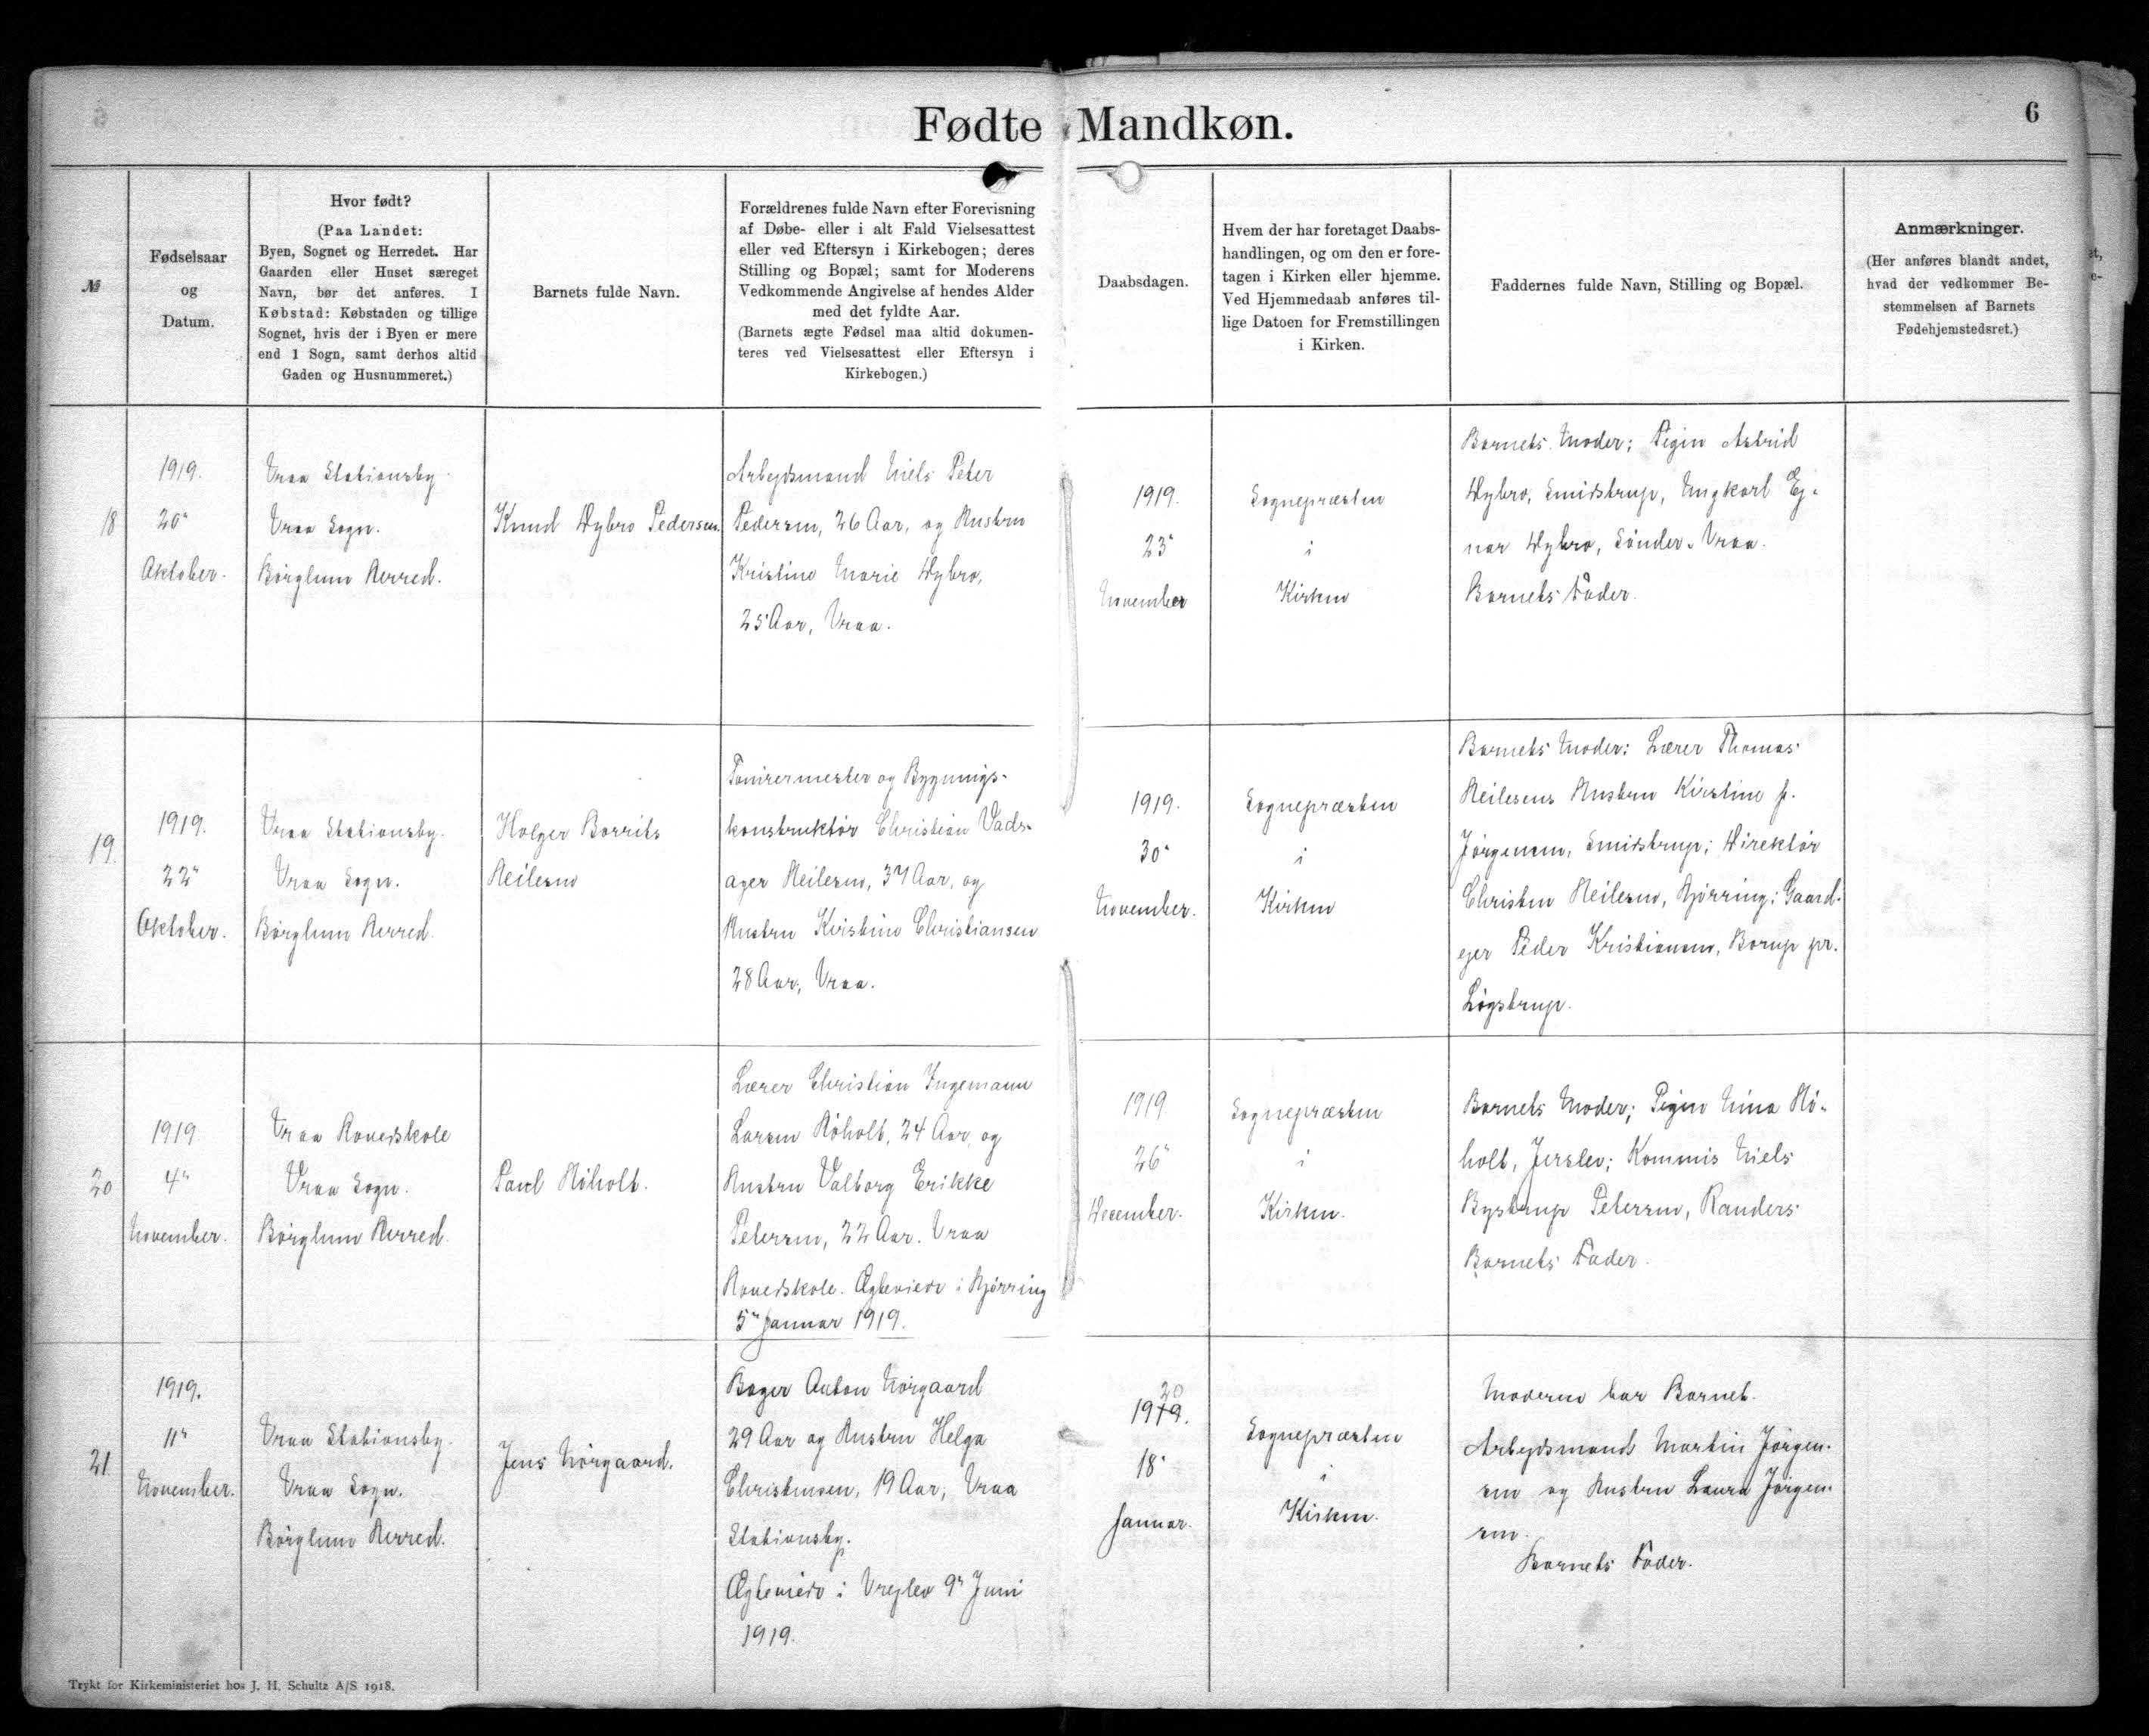 Fødte Mandkøn.
6
№
Fødselsaar
og
Datum.
Hvor født?
(Paa Landet:
Byen, Sognet og Herredet. Har
Gaarden eller Huset særeget
Navn, bør det anføres. I
Købstad: Købstaden og tillige
Sognet, hvis der i Byen er mere
end 1 Sogn, samt derhos altid
Gaden og Husnummeret.)
Barnets fulde Navn.
Forældrenes fulde Navn efter Forevisning
af Døbe- eller i alt Fald Vielsesattest
eller ved Eftersyn i Kirkebogen; deres
Stilling og Bopæl; samt for Moderens
Vedkommende Angivelse af hendes Alder
med det fyldte Aar.
(Barnets ægte Fødsel maa altid dokumen-
teres ved Vielsesattest eller Eftersyn i
Kirkebogen.)
Daabsdagen.
Hvem der har foretaget Daabs-
handlingen, og om den er fore-
tagen i Kirken eller hjemme.
Ved Hjemmedaab anføres til-
lige Datoen for Fremstillingen
i Kirken.
Faddernes fulde Navn, Stilling og Bopæl.
Anmærkninger.
(Her anføres blandt andet,
hvad der vedkommer Be-
stemmelsen af Barnets
Fødehjemstedsret.)
18
1919.
20"
Oktober.
Vraa Stationsby
Vraa Sogn.
Børglum Herred.
Knud Dybro Pedersen.
Arbejdsmand Niels Peter
Pedersen, 26 Aar, og Hustru
Kristine Marie Dybro,
25 Aar, Vraa.
1919.
23"
November
Sognepræsten
i
Kirken
Barnets Moder; Pigen Astrid
Dybro, Smidstrup, Ungkarl Ej-
nar Dybro, Sønder-Vraa.
Barnets Fader.
19.
1919.
22"
Oktober.
Vraa Stationsby.
Vraa Sogn.
Børglum Herred.
Holger Borrits
Heilesen
Tømrermester og Bygnings-
konstruktør Christian Vads-
ager Heilesen, 37 Aar, og
Hustru Kirstine Christiansen
28 Aar, Vraa.
1919.
30"
November.
Sognepræsten
i
Kirken
Barnets Moder: Lærer Thomas
Heilesens Hustru Kirstine f.
Jørgensen, Smidstrup; Direktør
Christen Heilesen, Hjørring; Gaard-
ejer Peder Kristiansen, Borup pr.
Løgstrup.
20
1919
4"
November.
Vraa Hovedskole
Vraa Sogn.
Børglum Herred.
Paul Høholt.
Lærer Christian Ingemann
Larsen Høholt, 24 Aar, og
Hustru Valborg Erikke
Petersen, 22 Aar. Vraa
Hovedskole. Ægteviede i Hjørring
5" Januar 1919.
1919
26"
December.
Sognepræsten
i
Kirken.
Barnets Moder; Pigen Nina Hø-
holt, Jerslev; Kommis Niels
Bystrup Petersen, Randers.
Barnets Fader.
21
1919.
11"
November.
Vraa Stationsby.
Vraa Sogn.
Børglum Herred.
Jens Nørgaard.
Bager Anton Nørgaard
29 Aar og Hustru Helga
Christensen, 19 Aar, Vraa
Stationsby.
Ægteviede i Vrejlev 9" Juni
1919.
20
1919.
18"
Januar.
Sognepræsten
i
Kirken.
Moderen bar Barnet.
Arbejdsmand Martin Jørgen-
sen og Hustru Laura Jørgen-
sen.
Barnets Fader.
Trykt for Kirkeministeriet hos J. H. Schultz A/S 1918.